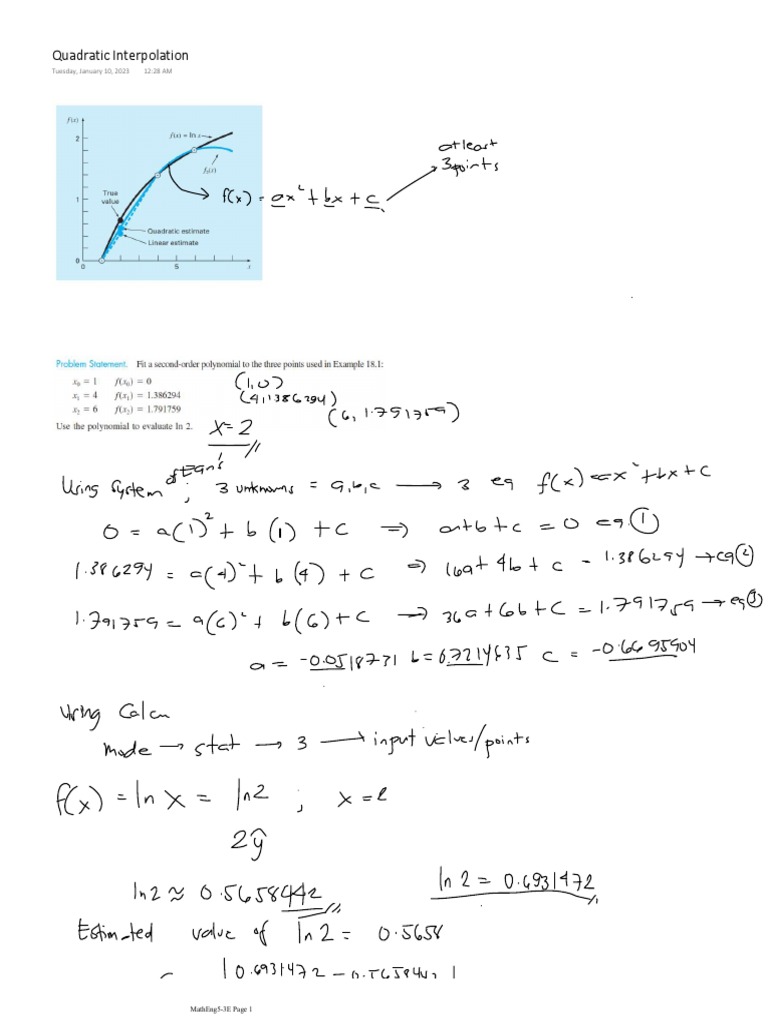 Quadratic Interpolation
Tuesday, January 10, 2023 12:28 AM
f(x)
2
f(x) = ln x
f₂(x)
at least
3 points
f(x) = ax² + bx + c
True
value
1
Quadratic estimate
Linear estimate
0
0 5 x
Problem Statement. Fit a second-order polynomial to the three points used in Example 18.1:
x₀ = 1 f(x₀) = 0 (1,0)
x₁ = 4 f(x₁) = 1.386294 (4,1.386294)
x₂ = 6 f(x₂) = 1.791759 (6, 1.791759)
Use the polynomial to evaluate ln 2. x = 2
Using system of Eqn's ; 3 unknowns = a, b, c → 3 eq f(x) = ax² + bx + c
0 = a(1)² + b(1) + c ⇒ a+b+c = 0 eq. ①
1.386294 = a(4)² + b(4) + c ⇒ 16a + 4b + c = 1.386294 → eq ②
1.791759 = a(6)² + b(6) + c → 36a + 6b + c = 1.791759 → eq ③
a = -0.0518731 b = c = -0.6695904
Using Calcu
mode → stat → 3 → input values/points
f(x) = ln x = ln 2 ; x = 2
2ŷ
ln 2 ≈ 0.5658442
ln 2 = 0.6931472
Estimated value of ln 2 = 0.5658
| 0.6931472 - 0.5658442 |
MathEng5-3E Page 1